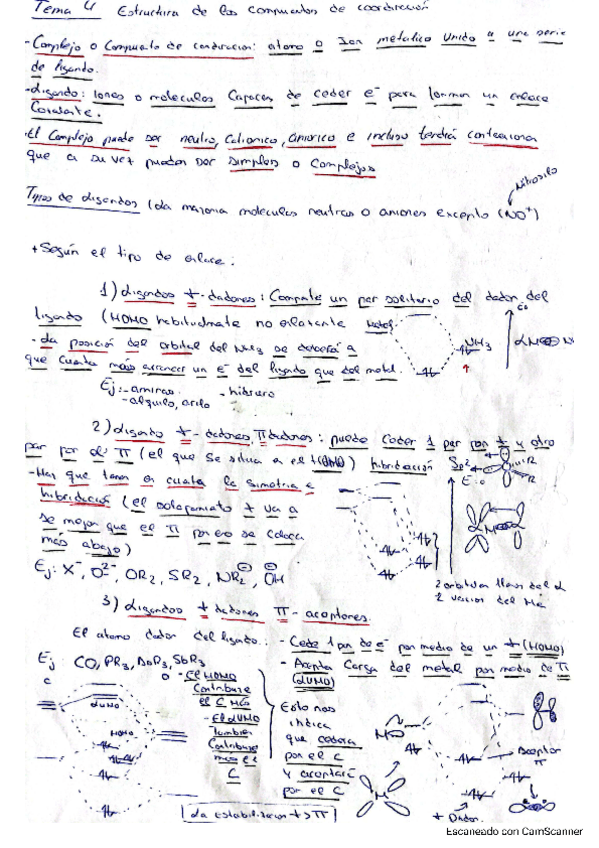 Tema 4 Estructura de los compuestos de coordinación
- Complejo o Compuesto de coordinacion: atomo o Ion metalico unido a una serie
de ligando.
- Ligando: Iones o moleculas Capaces de ceder e⁻ para formar un enlace
Covalente.
· El Complejo puede ser neutro, Cationico, anionico e incluso tendrá contraiones
que a su vez pueden ser simples o Complejos
Nitrosilo
Tipos de ligandos (La mayoria moleculas neutras o aniones excepto (NO⁺)
+ Según el tipo de enlace:
1) Ligandos σ-dadores: Comparte un par solitario del dador del
ligando (HOMO habitualmente no enlazante
Metal
E:0
NH₃
- La posición del orbital del NH₃ se deberá a
que cuesta más arrancar un e⁻ del ligando que del metal.
Ej: - aminas - hidruro
- alquilo, arilo
2) Ligando σ-dadores, π dadores: puede ceder 1 par por σ y otro
par por π (el que se situa a el HOMO) hibridación Sp²
E:0
R
R
- Hay que tener en cuenta la simetria e
hibridación (el solapamiento σ va a
se mejor que el π por eso se coloca
más abajo)
Ej: X⁻, O²⁻, OR₂, SR₂, NR₂⁻, OH⁻
2 orbitales llenos del L
2 vacios del Me
3) Ligandos σ dadores π-aceptores.
El atomo dador del ligado: - Cede 1 par de e⁻ por medio de un σ (HOMO)
- Acepta Carga del metal por medio de π
(LUMO)
Ej: CO, PR₃, SbR₃
C
O
- El HOMO
Contribuye
el C más
- El LUMO
tambien
Contribuye
más el
C
LUMO
HOMO
Esto nos
indica
que cedera
por el C
y aceptará
por el C
M
Aceptor
π
σ Dador
La estabilizacion σ > π
Escaneado con CamScanner